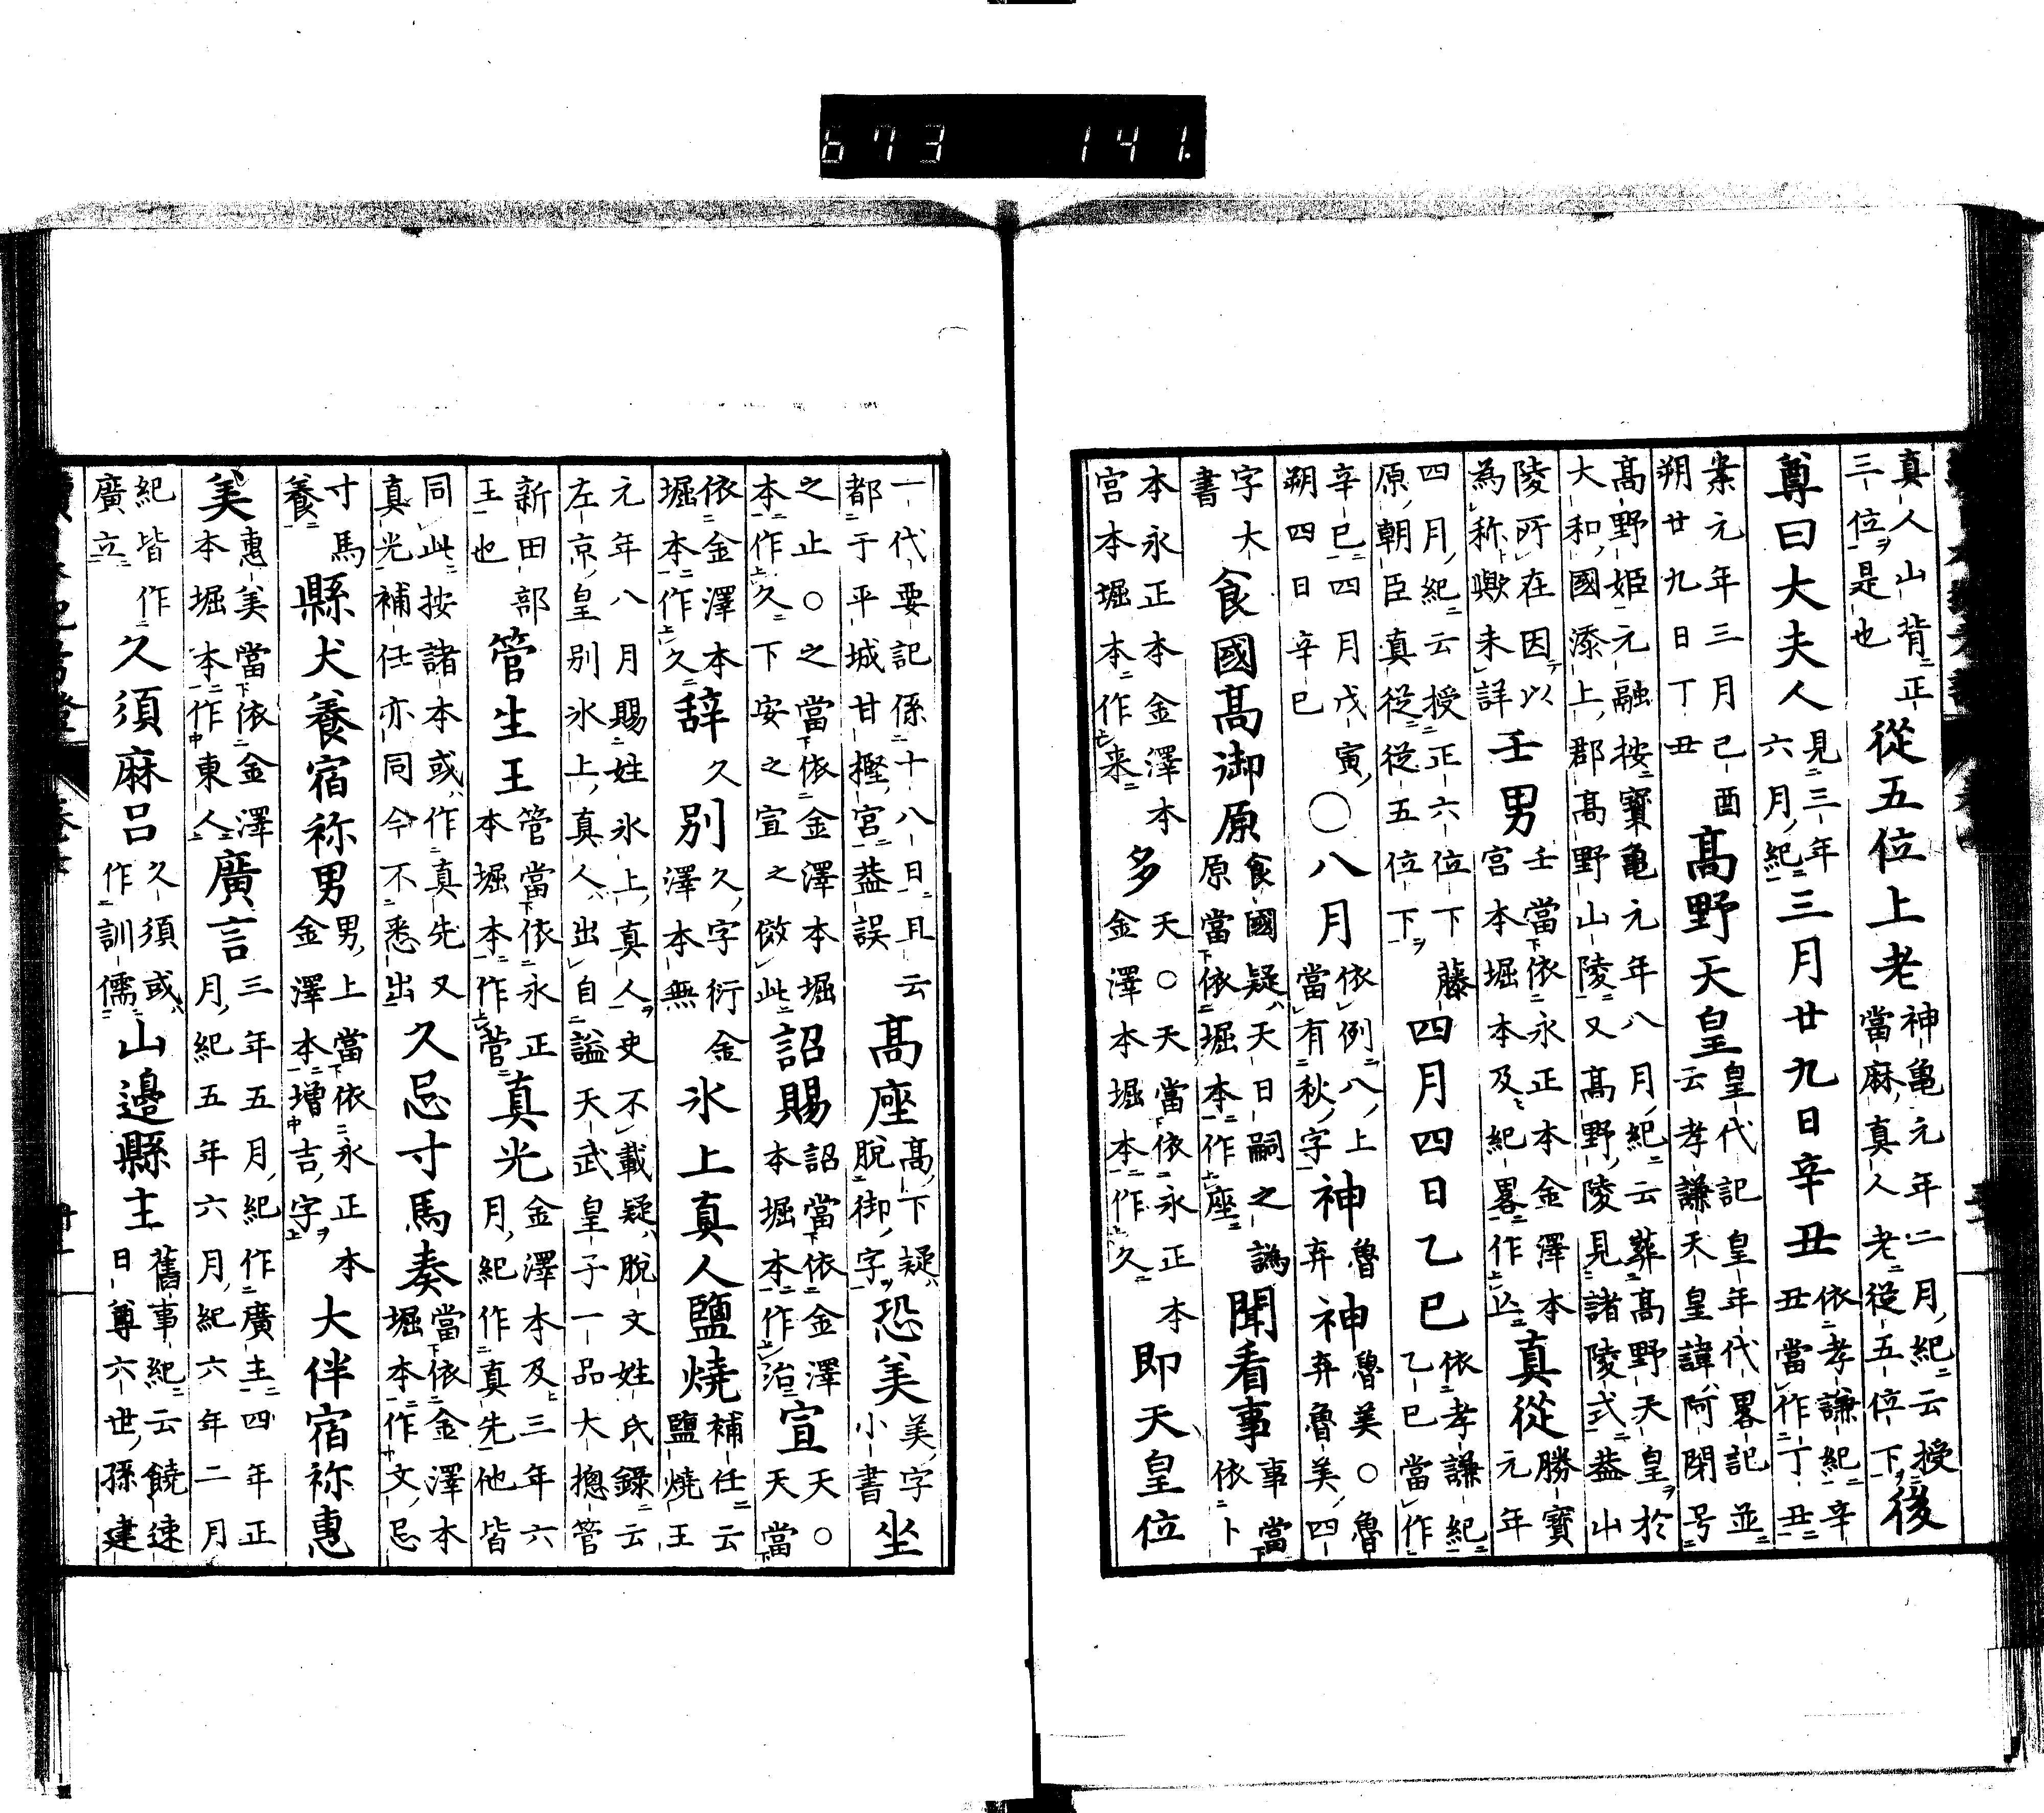 673 141.
真人山背正從五位上老神亀元年二月紀云授後
三位是也當麻真人老從五位下
尊曰大夫人見三年三月廿九日辛丑依孝謙紀辛
六月紀丑當作丁丑
案元年三月己酉高野天皇皇代記皇年代畧記並
朔廿九日丁丑云孝謙天皇諱阿閇号
高野姫元融按寶亀元年八月紀云葬高野天皇於
大和國添上郡高野山陵又高野陵見諸陵式葢山
陵所在因以壬男壬當依永正本金澤本真從勝寶
為称歟未詳宮本堀本及紀畧作丘元年
四月紀云授正六位下藤四月四日乙巳依孝謙紀
原朝臣真從從五位下乙巳當作
辛巳四月戊寅○八月依例八上神魯神魯美○魯
朔四日辛巳當有秋字弃弃魯美四
字大食國高御原食國疑天日嗣之譌聞看事事當
書原當依堀本作座依卜
本永正本金澤本多天○天當依永正本即天皇位
宮本堀本作来金澤本堀本作久
一代要記係十八日且云高座高下疑恐美美字坐
都于平城甘樫宮葢誤脫御字小書
之止○之當依金澤本堀詔賜詔當依金澤宣天○
本作久下安之宣之傚此本堀本作治天當
依金澤本辞久別久字衍金氷上真人鹽燒補任云
堀本作久澤本無鹽燒王
元年八月賜姓氷上真人史不載疑脫文姓氏錄云
左京皇別氷上真人出自謚天武皇子一品大揔管
新田部管生王管當依永正真光金澤本及三年六
王也本堀本作菅月紀作真先他皆
同此按諸本或作真先又久忌寸馬奏當依金澤本
真光補任亦同今不悉出堀本作文忌
寸馬縣犬養宿祢男男上當依永正本大伴宿祢惠
養金澤本増吉字
美惠美當依金澤廣言三年五月紀作廣主四年正
本堀本作東人月紀五年六月紀六年二月
紀皆作久須麻呂久須或山邉縣主舊事紀云饒速
廣立作訓儒日尊六世孫建